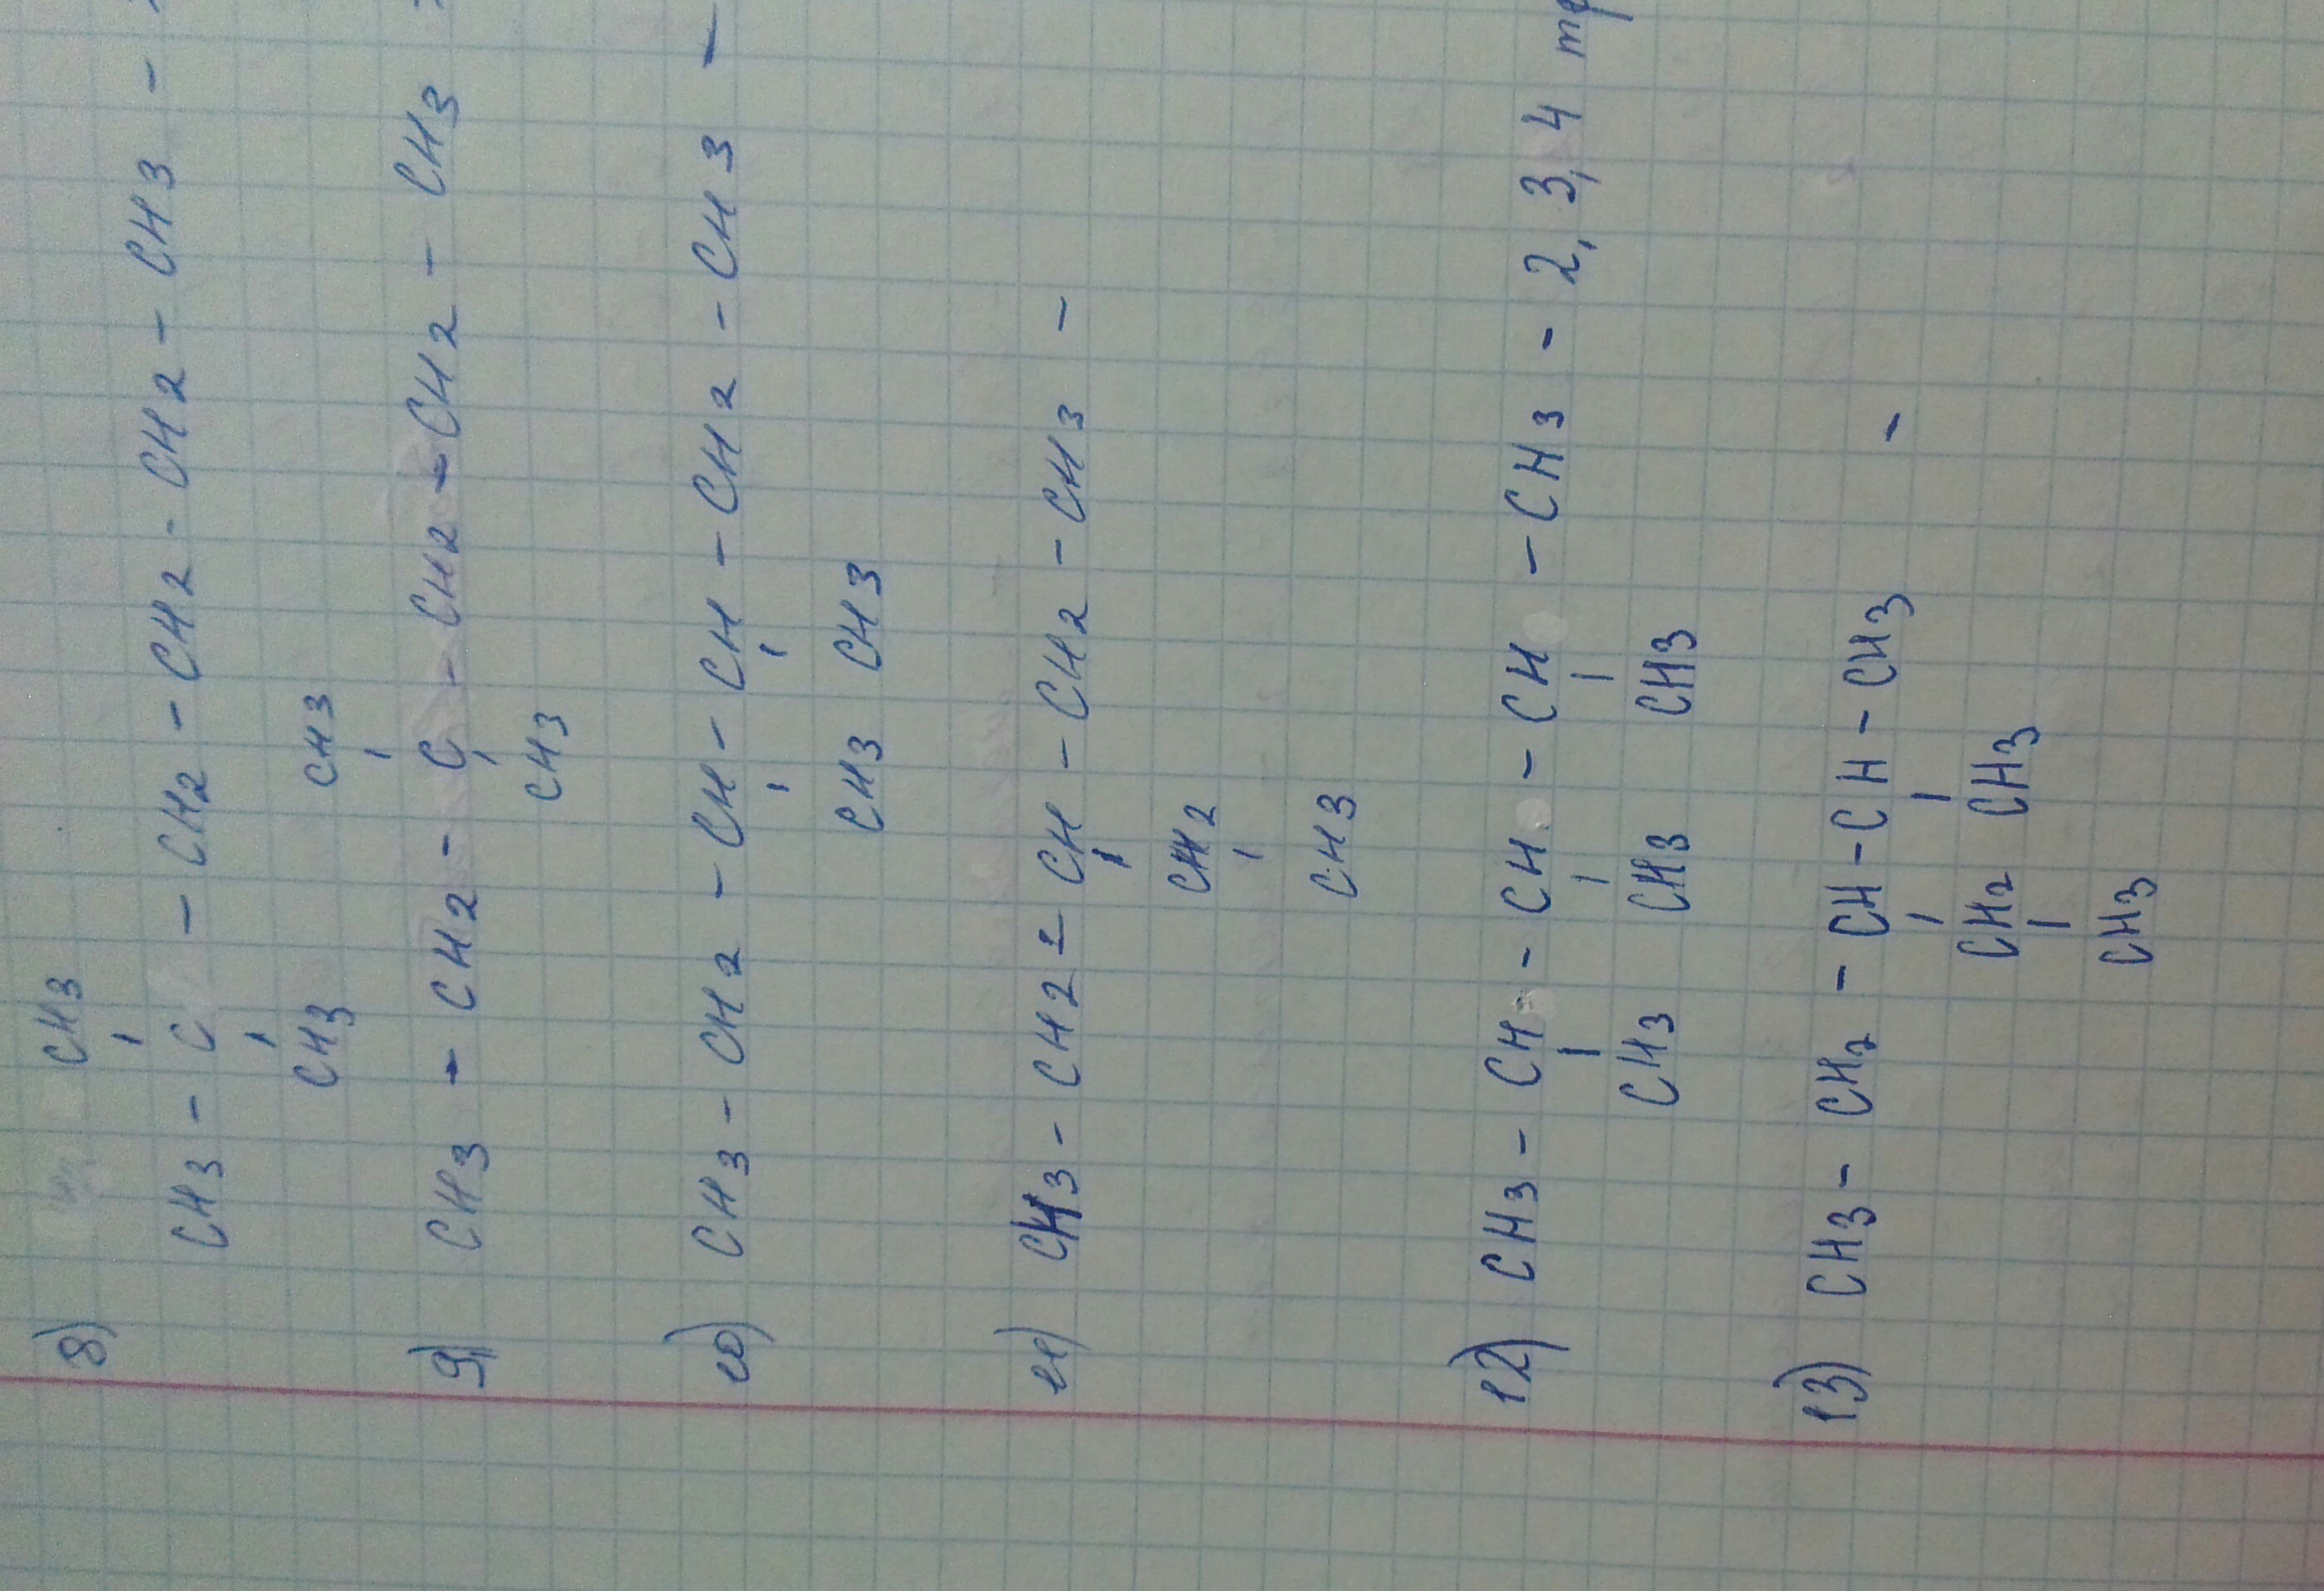 CH3
8)
CH3 - C - CH2 - CH2 - CH2 - CH2 - CH3 -
CH3
CH3
9) CH3 - CH2 - CH2 - C - CH2 - CH2 - CH3
CH3
10) CH3 - CH2 - CH2 - CH - CH - CH2 - CH3 -
CH3 CH3
11) CH3 - CH2 - CH - CH2 - CH3 -
CH2
CH3
12) CH3 - CH - CH - CH - CH3 - 2, 3, 4
CH3 CH3 CH3
13) CH3 - CH2 - CH - CH - CH3 -
CH2 CH3
CH3